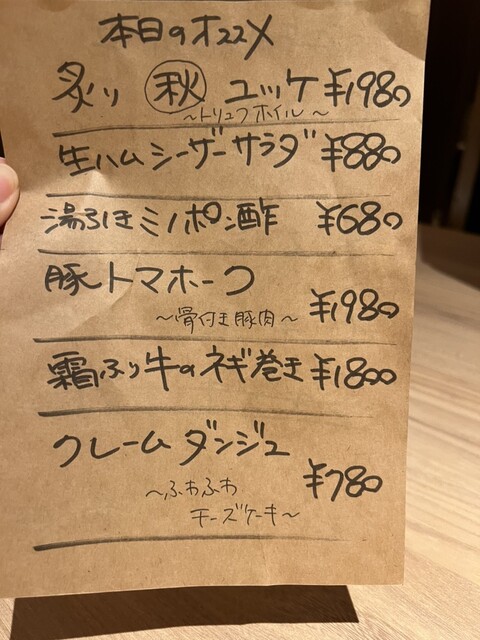 本日のオススメ
炙り ㊙秋 ユッケ ¥1980
~トリュフホイル~
生ハムシーザーサラダ ¥880
湯引きミノポン酢 ¥680
豚トマホーク
~骨付き豚肉~ ¥1980
霜ふり牛のネギ巻き ¥1800
クレームダンジュ
~ふわふわ ¥780
チーズケーキ~